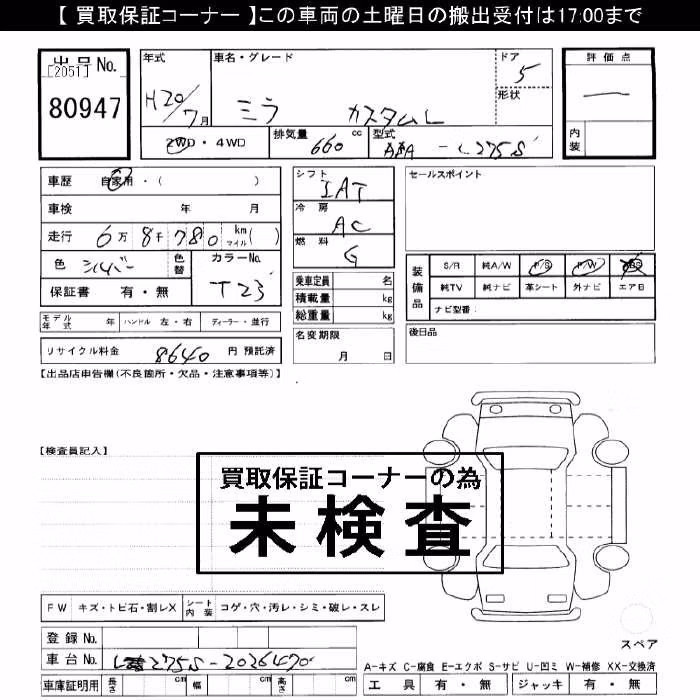 【 買取保証コーナー 】この車両の土曜日の搬出受付は17:00まで
出品No.
[2051]
80947
年式
H20/7月
車名・グレード
ミラ カスタムL
ドア
5
形状
評価点
内装
2WD・4WD
排気量 660 cc
型式 -L275S
車歴 自家用・( )
車検 年 月
走行 6万8千780 km マイル( )
色 シルバー 色替
カラーNo. T23
保証書 有・無
シフト IAT
冷房 AC
燃料 G
乗車定員 名
積載量 kg
総重量 kg
名変期限
月 日
セールスポイント
装備品
S/R 純A/W P/S P/W
純TV 純ナビ 革シート 外ナビ エアB
ナビ型番:
後日品
モデル年式 年 ハンドル 左・右 ディーラー・並行
リサイクル料金 8640 円 預託済
【出品店申告欄(不良箇所・欠品・注意事項等)】
【検査員記入】
買取保証コーナーの為
未検査
FW キズ・トビ石・割レX シート内装 コゲ・穴・汚レ・シミ・破レ・スレ
登録No.
車台No. 275S-2026470
車庫証明用 長さ cm 幅 cm 高さ cm
スペア
A-キズ C-腐食 E-エクボ S-サビ U-凹ミ W-補修 XX-交換済
工具 有・無 ジャッキ 有・無